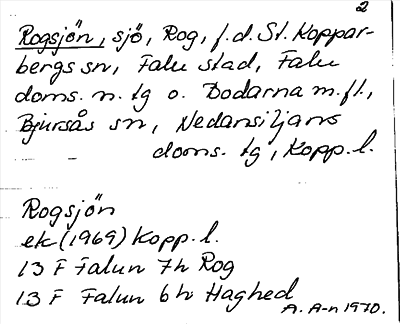 2
Rogsjön, sjö, Rog, f.d. St. Koppar-
bergs sn, Falu stad, Falu
doms. n. tg o. Dodarna m.fl.,
Bjursås sn, Nedansiljans
doms. tg, Kopp. l.
Rogsjön
ek (1969) Kopp. l.
13 F Falun 7h Rog
13 F Falun 6h Haghed
A. A-n 1970.